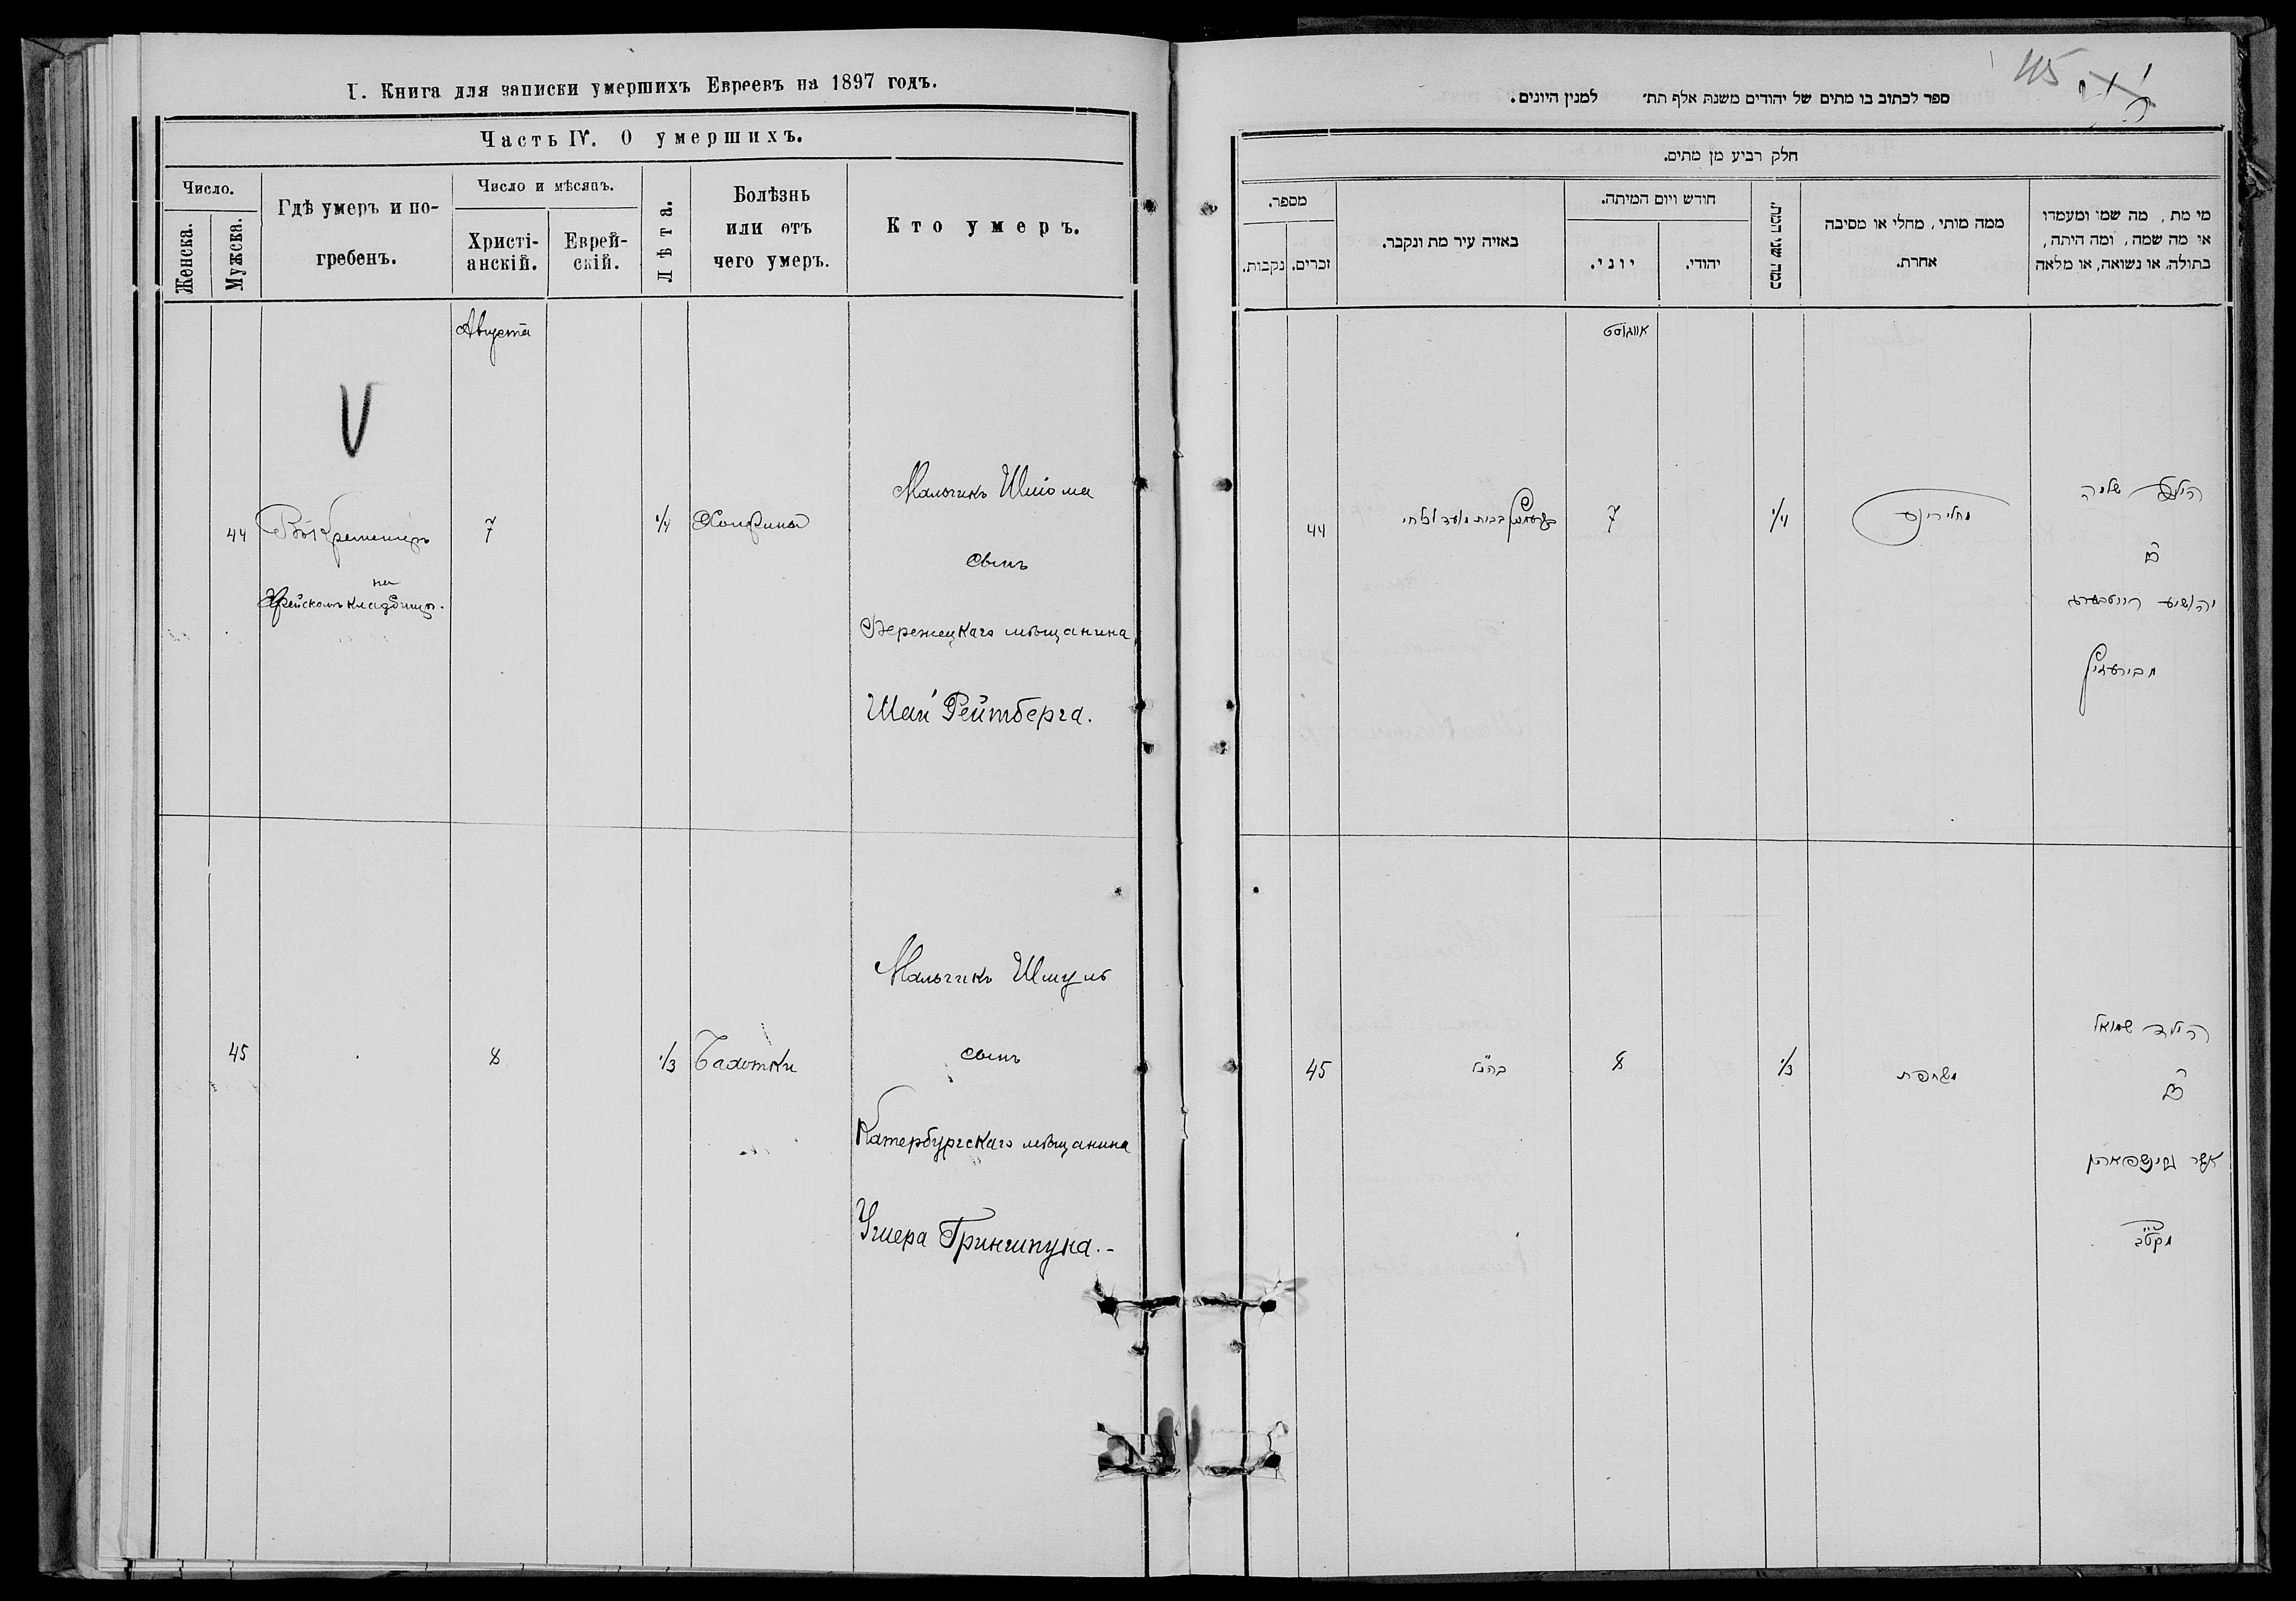 I. Книга для записки умершихъ Евреевъ на 1897 годъ.
Часть IV. О умершихъ.
Число.
Женска.
Мужска.
Гдѣ умеръ и по-
гребенъ.
Число и мѣсяцъ.
Христі-
анскій.
Еврей-
скій.
Лѣта.
Болѣзнь
или отъ
чего умеръ.
Кто умеръ.
Августа
44
Въ Кременцѣ
на
Еврейскомъ кладбищѣ.
7
1/4
Мальчикъ Шлома
сынъ
Бережецкаго мѣщанина
Шаи Рейтберга.
45
8
1/3
Чахотки
Мальчикъ Шмуль
сынъ
Катербургскаго мѣщанина
Ушера Гриншпуна.-
45
ספר לכתוב בו מתים של יהודים משנת אלף תת׳ למנין היונים.
חלק רביע מן מתים.
מספר.
נקבות.
זכרים.
באזיה עיר מת ונקבר.
חודש ויום המיתה.
יוני.
יהודי.
כמה שני המת.
ממה מותי, מחלי או מסיבה
אחרת.
מי מת, מה שמו ומעמדו
או מה שמה, ומה היתה,
בתולה, או נשואה, או מלאה
אווגוסט
44
7
1/4
הילד שלמה
ב״ר
יהושיע רייטבערג
45
בהנ״ל
8
1/3
משחפת
הילד שמואל
ב״ר
אשר גרינשפאהן